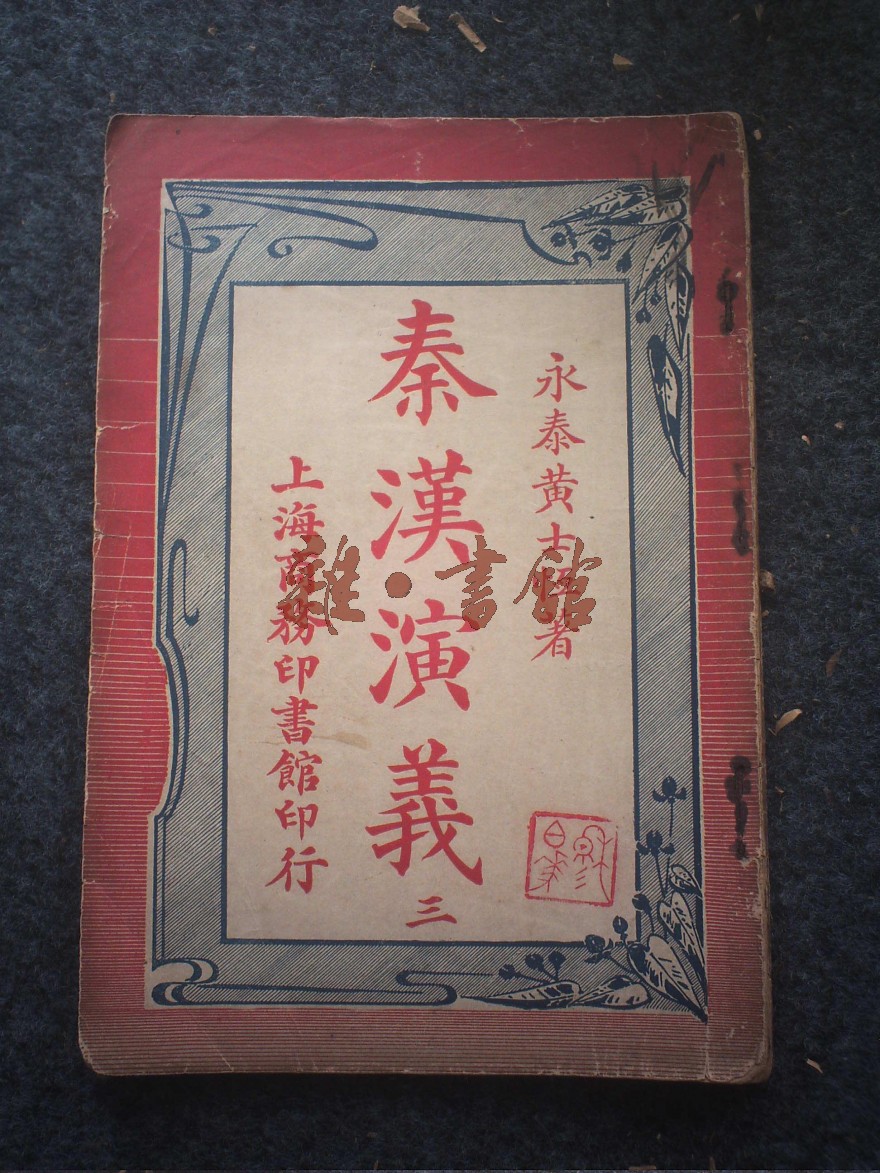 永泰黄士恆著
秦漢演義
三
上海商務印書館印行
雜·書館